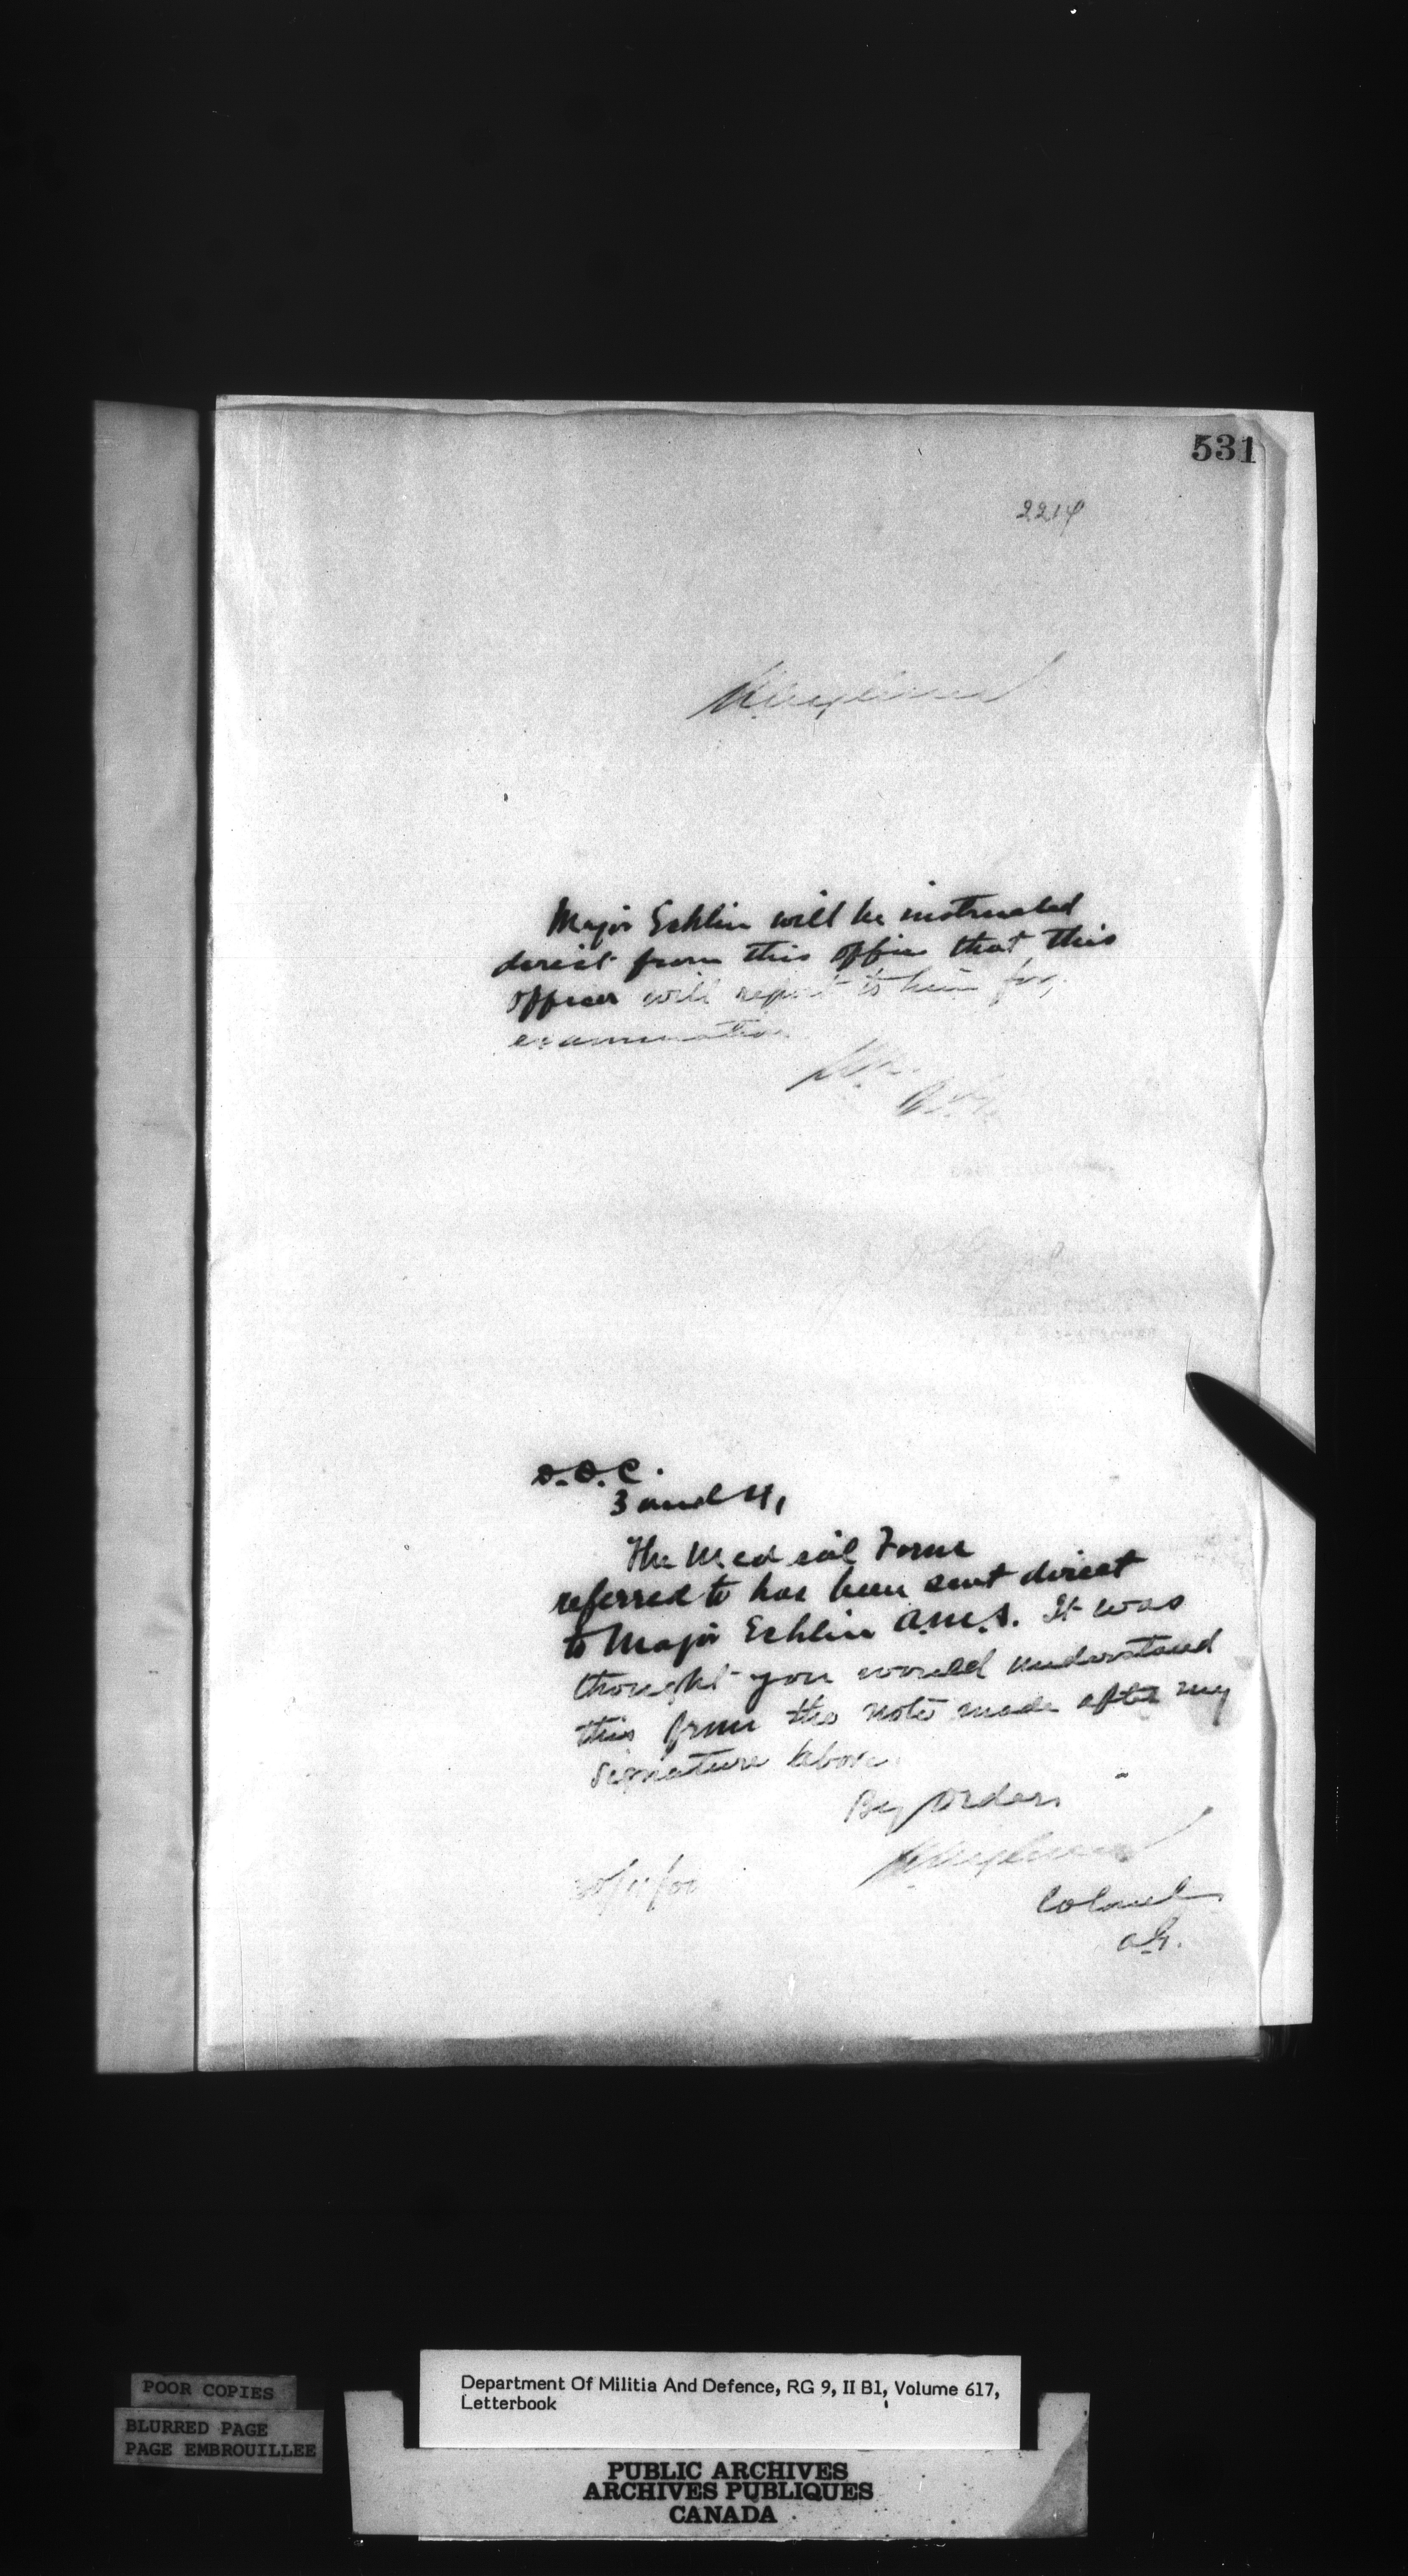 531
2214
Major Echlin will be instructed
direct from this office that this
officer will report to him for
examination
D.O.C.
3 and 4,
The Medical Form
referred to has been sent direct
to Major Echlin A.M.S. It was
thought you would understand
this from the note made after my
signature above.
By Order,
30/11/00
Colonel
A.G.
POOR COPIES
BLURRED PAGE
PAGE EMBROUILLEE
Department Of Militia And Defence, RG 9, II B1, Volume 617,
Letterbook
PUBLIC ARCHIVES
ARCHIVES PUBLIQUES
CANADA